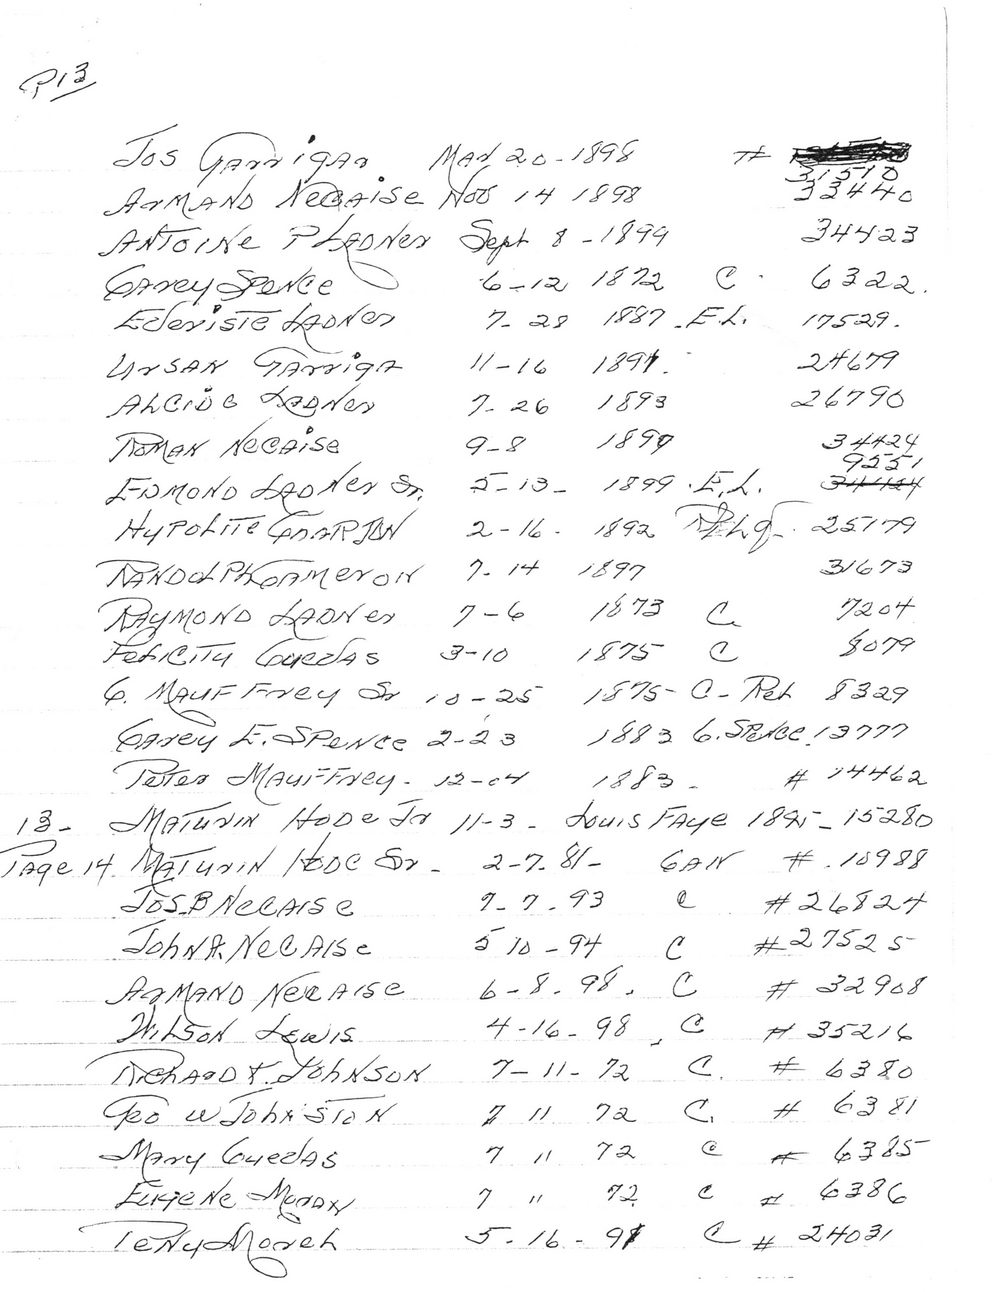 P13
Jos Garrigan Mar 20-1898 #
31510
Armand Necaise Nov 14 1898 33440
Antoine P Ladner Sept 8-1899 34423
Carey Spence 6-12 1872 C. 6322.
Ederiste Ladner 7-28 1887. E.L. 17529.
Ursan Garriga 11-16 1891. 24679
Alcide Ladner 7-26 1893 26790
Roman Necaise 9-8 1899 34424
9551
Edmond Ladner Sr. 5-13- 1899. E.L. 34424
Hypolite 2-16. 1892 25179
Randolph Cameron 7-14 1897 31673
Raymond Ladner 7-6 1873 C. 7204
Felicity Cuedas 3-10 1875 C 8079
C. Mauffrey Sr 10-25 1875- C-Reh 8329
Carey E. Spence 2-23 1883 C. Spence. 13777
Peter Mauffrey. 12-04 1883. # 14462
13- Maturin Hode Jr 11-3- Louis Faye 1885-15280
Page 14. Maturin Hode Sr- 2-7-81- Gan #.10988
Jos. B Necaise 7-7.93 C #26824
John A. Necaise 5 10-94 C #27525
Armand Necaise 6-8.98. C # 32908
Wilson Lewis 4-16-98, C #35216
Richard K. Johnson 7-11-72 C. # 6380
Geo W Johnston 7 11 72 C. # 6381
Mary Cuedas 7 " 72 C # 6385
Eugene Moran 7 " 72 C # 6386
Terry Moreh 5-16-91 C # 24031